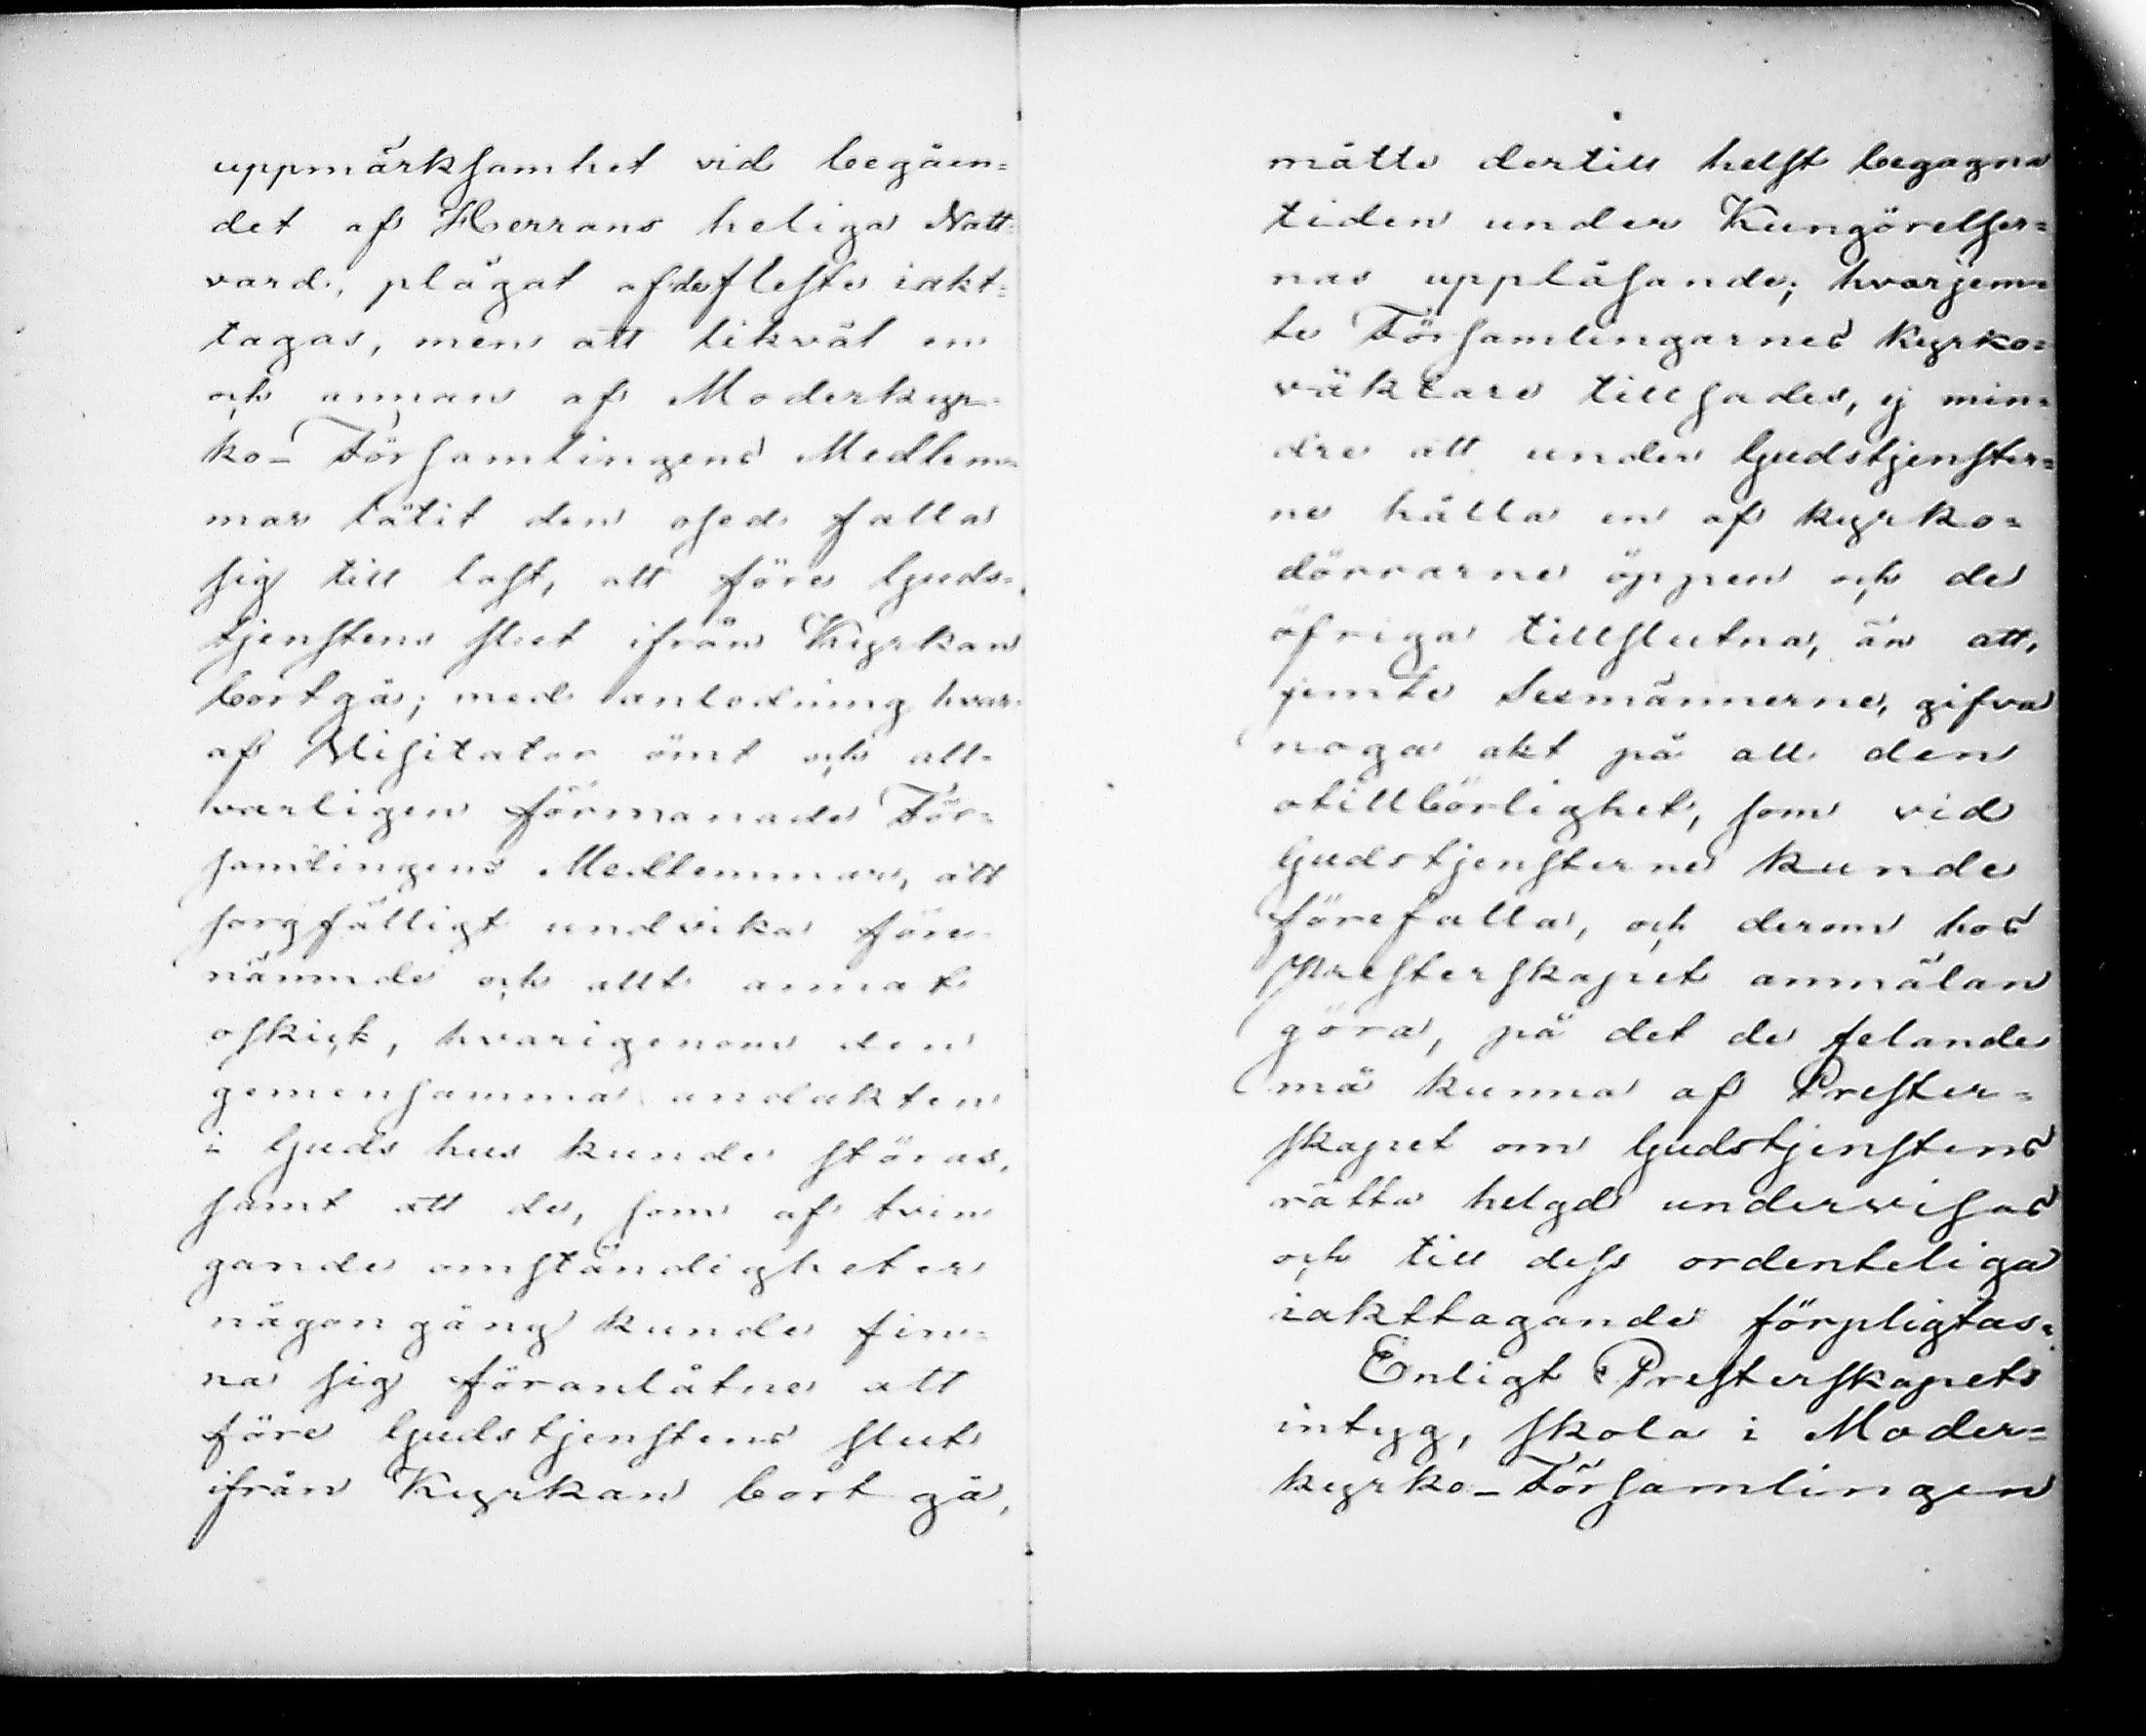 uppmärksamhet vid begåen=
det af Herrans heliga Natt=
vard, plägat af de fleste iakt=
tagas, men att likväl en
och annan af Moderkyr=
ko-Församlingens Medlem=
mar låtit den osed falla
sig till last, att före Guds=
tjenstens slut ifrån Kyrkan
bortgå; med anledning hvar=
af Visitator ömt och all=
varligen förmanade För=
samlingens Medlemmar, att
sorgfälligt undvika före=
nämnde och allt annat
oskick, hvarigenom den
gemensamma andakten
i Guds hus kunde störas,
samt att de, som af tvin
gande omständigheter
någon gång kunde fin=
na sig föranlåtne att
före Gudstjenstens slut
ifrån Kyrkan bort gå,
måtte dertill helst begagna
tiden under Kungörelser=
nas uppläsande; hvarjem=
te Församlingarnes Kyrko=
väktare tillsades, ej min=
dre att under Gudstjenster=
ne hålla en af kyrko=
dörrarne öppen och de
öfriga tillslutna, än att,
jemte Sexmännerne, gifva
noga akt på all den
otillbörlighet, som vid
Gudstjensterne kunde
förefalla, och derom hos
Presterskapet anmälan
göra, på det de felande
må kunna af Prester=
skapet om Gudstjenstens
rätta helgd undervisas
och till dess ordenteliga
iakttagande förpligtas.
Enligt Presterskapets
intyg, skola i Moder=
kyrko-Församlingen